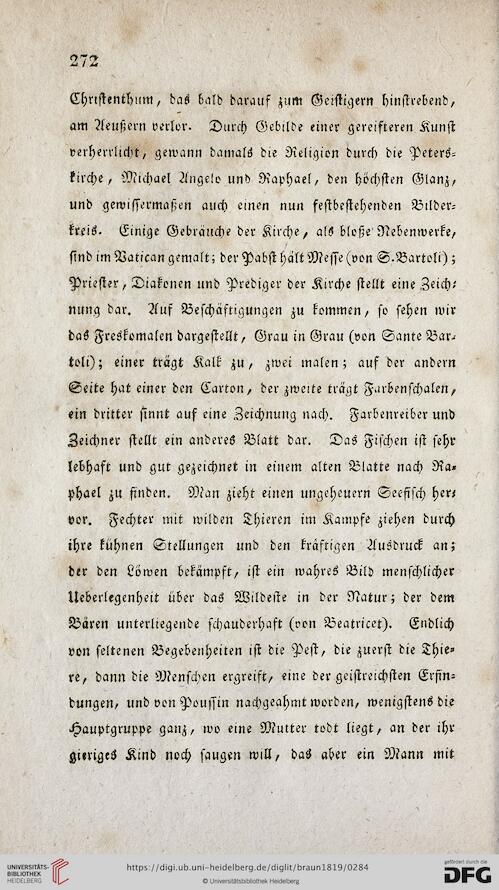 272
Christenthum, das bald darauf zum Geistigern hinstrebend,
am Aeußern verlor. Durch Gebilde einer gereifteren Kunst
verherrlicht, gewann damals die Religion durch die Peters-
kirche, Michael Angelo und Raphael, den höchsten Glanz,
und gewissermaßen auch einen nun festbestehenden Bilder-
kreis. Einige Gebräuche der Kirche, als bloße Nebenwerke,
sind im Vatican gemalt; der Pabst hält Messe (von S. Bartoli);
Priester, Diakonen und Prediger der Kirche stellt eine Zeich-
nung dar. Auf Beschäftigungen zu kommen, so sehen wir
das Freskomalen dargestellt, Grau in Grau (von Sante Bar-
toli); einer trägt Kalk zu, zwei malen; auf der andern
Seite hat einer den Carton, der zweite trägt Farbenschalen,
ein dritter sinnt auf eine Zeichnung nach. Farbenreiber und
Zeichner stellt ein anderes Blatt dar. Das Fischen ist sehr
lebhaft und gut gezeichnet in einem alten Blatte nach Ra-
phael zu finden. Man zieht einen ungeheuern Seefisch her-
vor. Fechter mit wilden Thieren im Kampfe ziehen durch
ihre kühnen Stellungen und den kräftigen Ausdruck an;
der den Löwen bekämpft, ist ein wahres Bild menschlicher
Ueberlegenheit über das Wildeste in der Natur; der dem
Bären unterliegende schauderhaft (von Beatricet). Endlich
von seltenen Begebenheiten ist die Pest, die zuerst die Thie-
re, dann die Menschen ergreift, eine der geistreichsten Erfin-
dungen, und von Poussin nachgeahmt worden, wenigstens die
Hauptgruppe ganz, wo eine Mutter todt liegt, an der ihr
gieriges Kind noch saugen will, das aber ein Mann mit
UNIVERSITÄTS-
BIBLIOTHEK
HEIDELBERG
https://digi.ub.uni-heidelberg.de/diglit/braun1819/0284
© Universitätsbibliothek Heidelberg
gefördert durch die
DFG